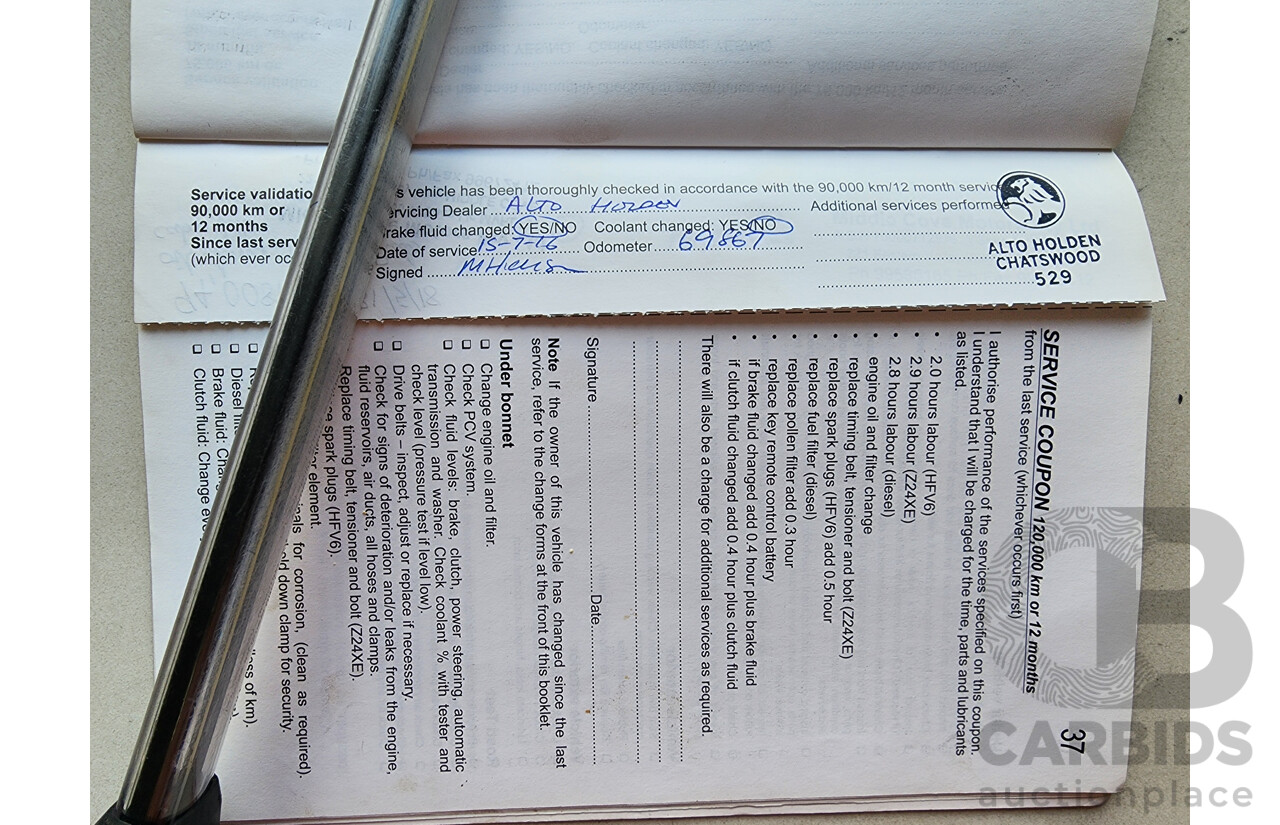 Service validatio
90,000 km or
12 months
Since last serv
(which ever oc
s vehicle has been thoroughly checked in accordance with the 90,000 km/12 month servic
ervicing Dealer ALTO HOLDEN Additional services performe
rake fluid changed: YES/NO Coolant changed: YES/NO
Date of service 15-7-16 Odometer 69867
Signed
ALTO HOLDEN
CHATSWOOD
529
SERVICE COUPON 120,000 km or 12 months
from the last service (whichever occurs first)
37
I authorise performance of the services specified on this coupon.
I understand that I will be charged for the time, parts and lubricants
as listed.
• 2.0 hours labour (HFV6)
• 2.9 hours labour (Z24XE)
• 2.8 hours labour (diesel)
• engine oil and filter change
• replace timing belt, tensioner and bolt (Z24XE)
• replace spark plugs (HFV6) add 0.5 hour
• replace fuel filter (diesel)
• replace pollen filter add 0.3 hour
• replace key remote control battery
• if brake fluid changed add 0.4 hour plus brake fluid
• if clutch fluid changed add 0.4 hour plus clutch fluid
There will also be a charge for additional services as required.
Signature Date
Note If the owner of this vehicle has changed since the last
service, refer to the change forms at the front of this booklet.
Under bonnet
Change engine oil and filter.
Check PCV system.
Check fluid levels: brake, clutch, power steering, automatic
transmission and washer. Check coolant % with tester and
check level (pressure test if level low).
Drive belts – inspect, adjust or replace if necessary.
Check for signs of deterioration and/or leaks from the engine,
fluid reservoirs, air ducts, all hoses and clamps.
Replace timing belt, tensioner and bolt (Z24XE).
spark plugs (HFV6).
element.
nals for corrosion, (clean as required).
ld down clamp for security.
ess of km).
Brake fluid: Chan
Clutch fluid: Change eve
CARBIDS
auctionplace